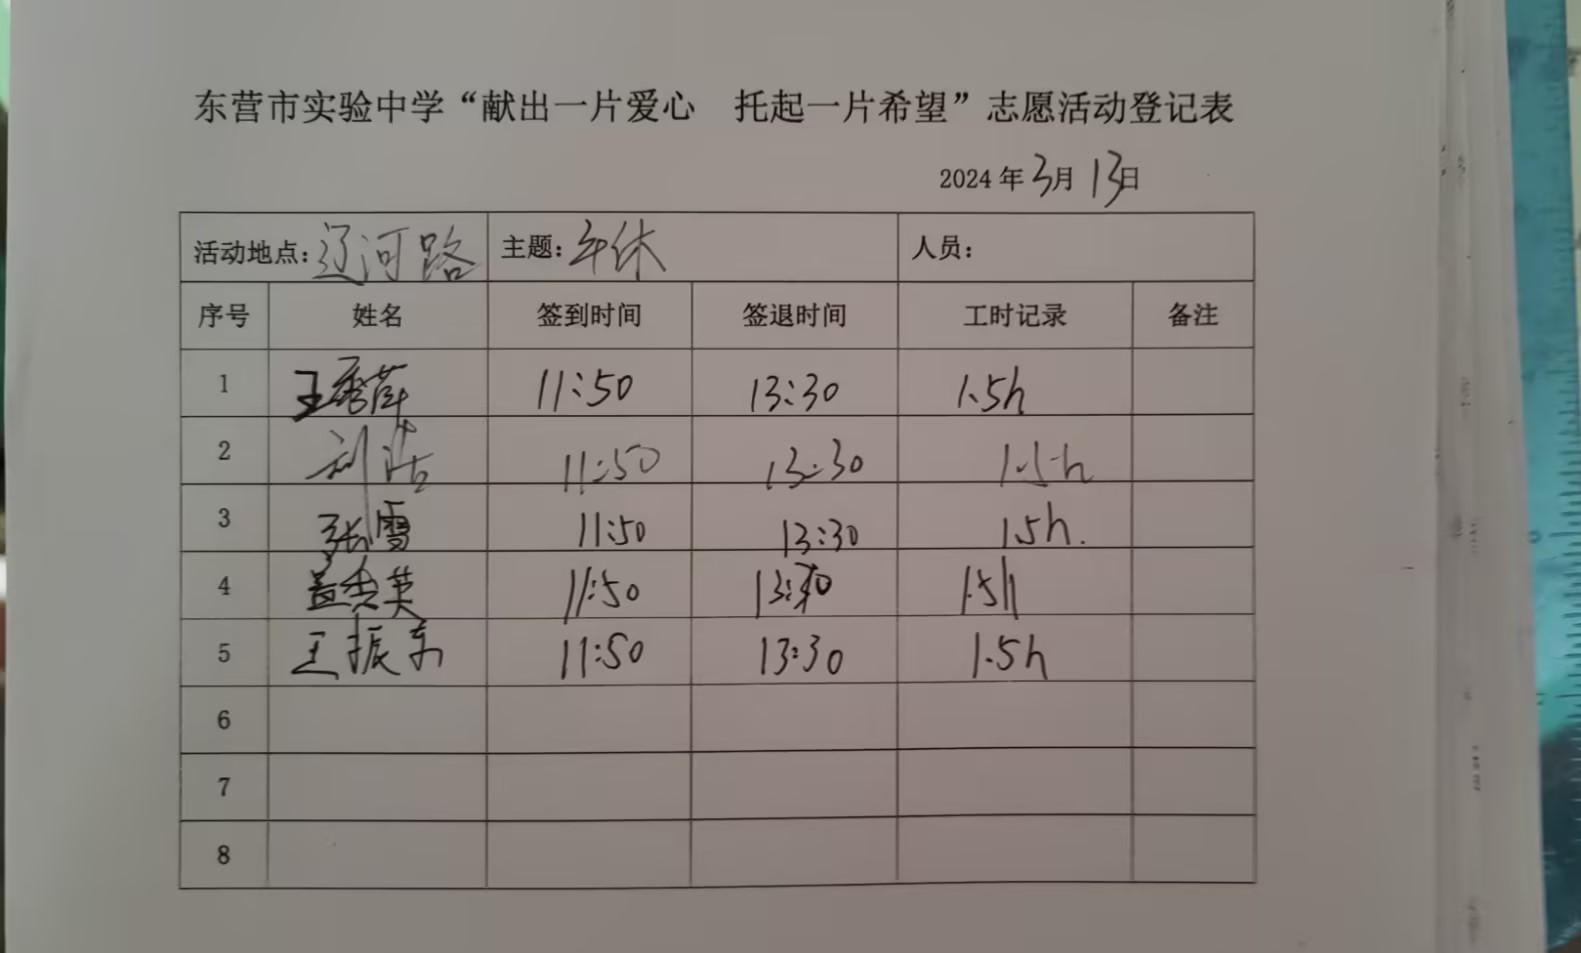 东营市实验中学“献出一片爱心 托起一片希望”志愿活动登记表
2024年3月13日
活动地点：辽河路 主题：午休 人员：
序号 姓名 签到时间 签退时间 工时记录 备注
1 王秀萍 11:50 13:30 1.5h
2 刘洁 11:50 13:30 1.5h
3 张雪 11:50 13:30 1.5h.
4 盖秀英 11:50 13:30 1.5h
5 王振东 11:50 13:30 1.5h
6
7
8